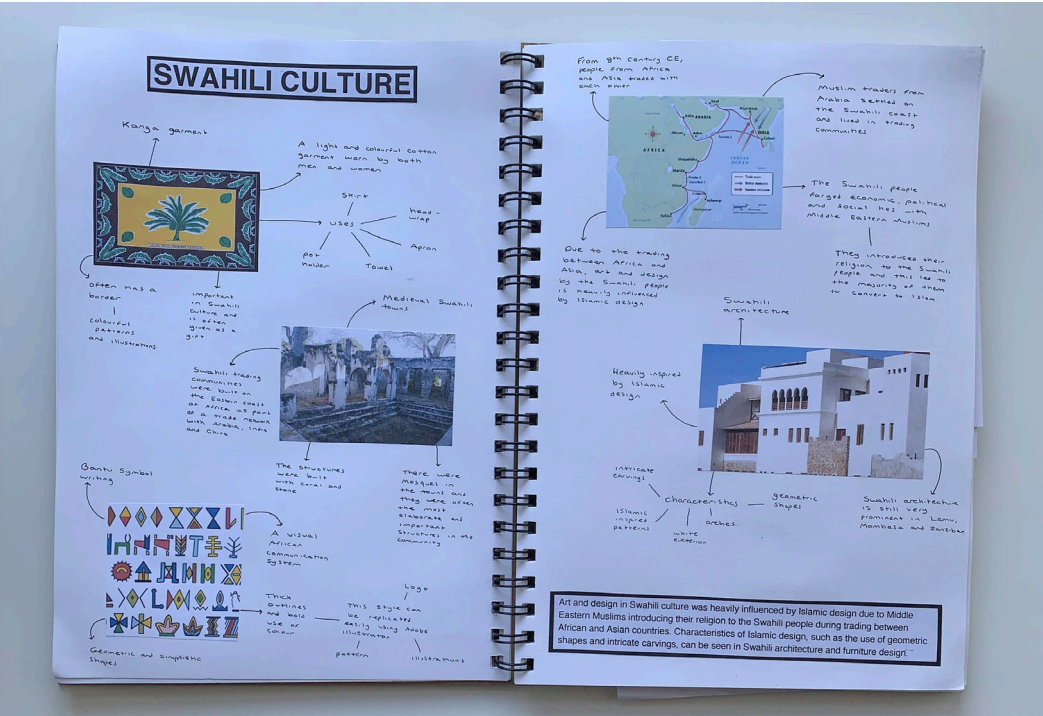 SWAHILI CULTURE
Kanga garment
A light and colourful cotton
garment worn by both
men and women
Skirt
uses
head-
wrap
Apron
Towel
pot
holder
often has a
border
colourful
patterns
and illustrations
important
in Swahili
Culture and
is often
given as a
gift
Medieval Swahili
towns
Swahili trading
communities
were built on
the Eastern coast
of Africa as part
of a trade network
with Arabia, India
and China
The structures
were built
with coral and
stone
There were
Mosques in
the towns and
they were often
the most
elaborate and
important
structures in the
community
Bantu Symbol
writing
A visual
African
communication
system
Thick
outlines
and bold
use of
colour
This style can
be replicated
easily using Adobe
Illustrator
Logo
pattern
illustrations
Geometric and simplistic
shapes
From 8th century CE,
people from Africa
and Asia traded with
each other
Muslim traders from
Arabia settled on
the Swahili coast
and lived in trading
communities
ARABIA
AFRICA
INDIA
INDIAN
OCEAN
The Swahili people
forged economic, political
and social ties with
Middle Eastern Muslims
They introduced their
religion to the Swahili
people and this led to
the majority of them
to convert to Islam
Due to the trading
between Africa and
Asia, art and design
by the Swahili people
is heavily influenced
by Islamic design
Swahili
architecture
Heavily inspired
by Islamic
design
intricate
carvings
Characteristics
geometric
shapes
Islamic
inspired
patterns
white
exterior
arches
Swahili architecture
is still very
prominent in Lamu,
Mombasa and Zanzibar
Art and design in Swahili culture was heavily influenced by Islamic design due to Middle
Eastern Muslims introducing their religion to the Swahili people during trading between
African and Asian countries. Characteristics of Islamic design, such as the use of geometric
shapes and intricate carvings, can be seen in Swahili architecture and furniture design.